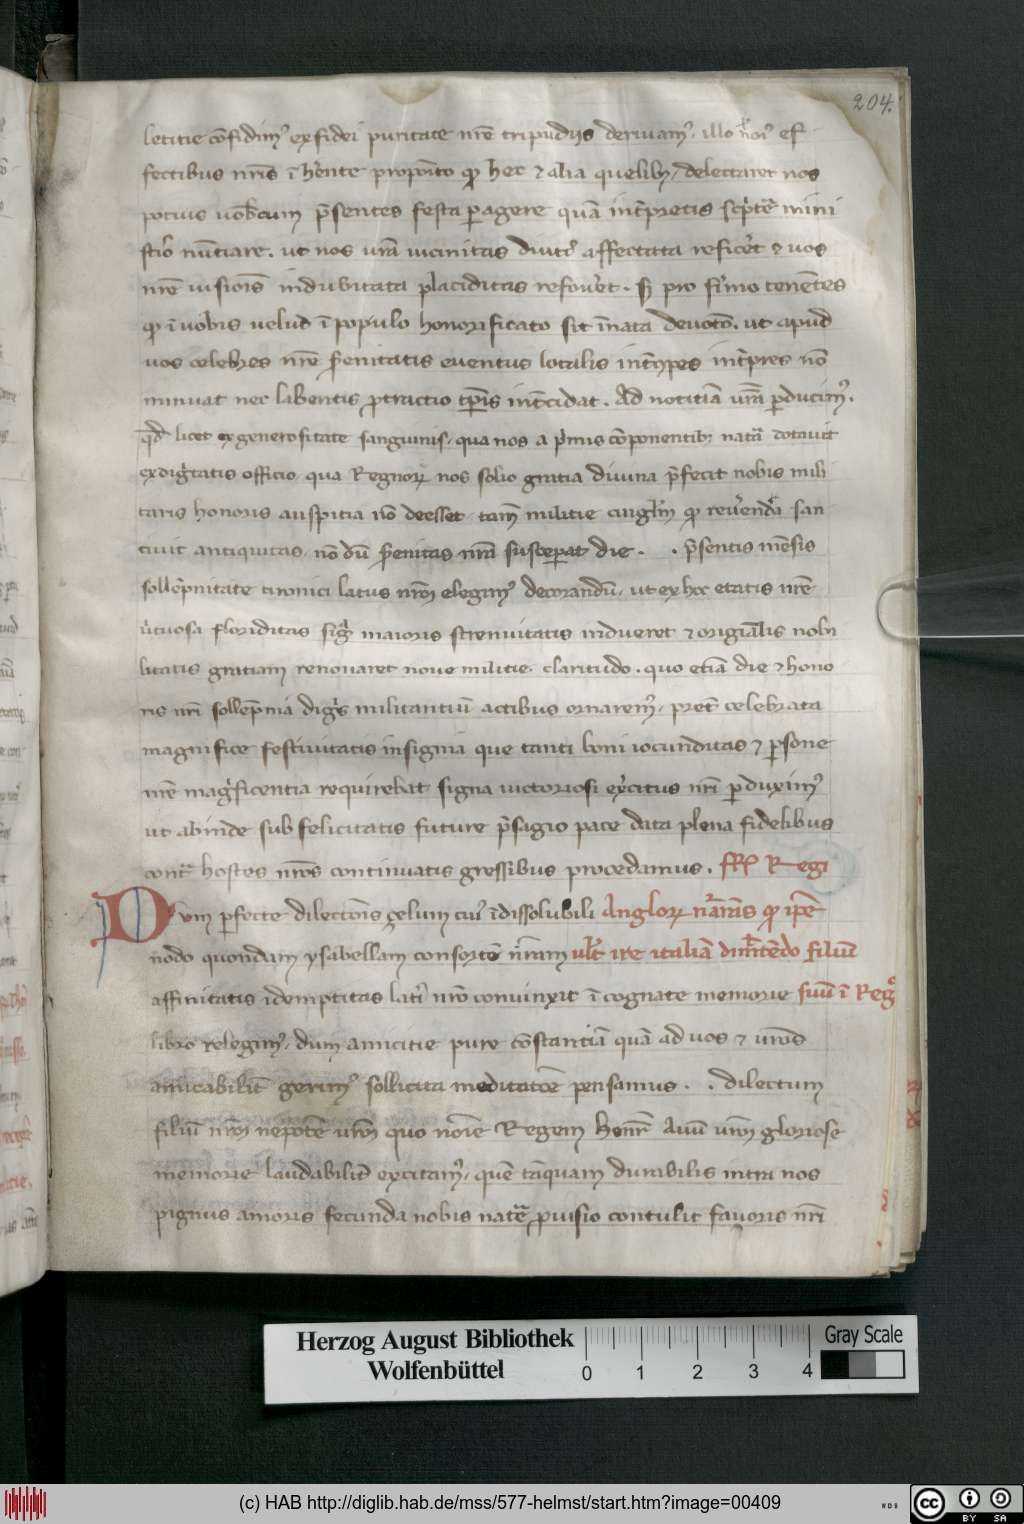 204.
letitie cōfidimꝰ ex fidei puritate nr̄e tripudijs deriuamꝰ · illo ef
fectibus nr̄is ī hn̄te propoīto ꝙ hec ⁊ alia quelibꝫ / delectaret nos
potius uobcum p̄sentes festa ꝑagere quā int̄pretis scptē mini
stio nūtiare . ut nos ur̄a uicinitas diuti affectata reficet ⁊ uos
nr̄e uisiōis indubitata placiditas refouet . pro firmo tenētes
ꝙ ī uobis uelud ī populo honorificato sit īnata deuotō . ut apud
uos celebres nr̄e s̄enitatis euentus localis int̄ꝑes int̄pres nō
minuat nec labentis ꝓtractio tp̄is int̄cidat . Ad notitiā ur̄am ꝑducimꝰ .
qd̄ licet ex generositate sanguinis / qua nos a p̄mis cōponentibꝫ natā dotauit
ex digtatis officio / qua Regnoꝝ nos solio gratia diuina p̄fecit nobis mili
taris honoris auspitia nō deesset / tam̄ militie cinglm̄ ꝙ reuēnda san
ciuit antiquitas / nō dū s̄enitas nr̄a susceperat die . . p̄sentis mēsis
sollēpnitate tironici latus nr̄m elegimꝰ decorandū / ut ex hoc etatis nr̄e
utuosa floriditas sig maioris strenuitatis indueret ⁊ origīalis nobi
litatis gratiam renouaret noue militie claritudo . quo etiā die ⁊ hono
ris nr̄i sollēpnia digis militantiū actibus ornaremꝰ / pret celebrata
magnifice festiuitatis insignia que tanti boni iocunditas ⁊ ꝑsone
nr̄e magificentia requirebat signa uictoriosi excitus nr̄i ꝑduximꝰ
ut abinde sub felicitatis future p̄sagio pace data plena fidelibus
cont hostes nr̄os continuatis gressibus procedamus . FR. Regi
Dum ꝑfecte dilectōis çelum cui īdissolubili Angloꝝ nārās ꝙ ip̄e
nodo quondam ysabellam consortē nr̄am ult ire italiā dimitēdo filiū
affinitatis idemptitas lati nr̄o conuinxit ī cognate memorie suū ī Regꝰ
libro relegimꝰ / dum amicitie pure cōstantiā quā ad uos ⁊ ur̄os
amicabilit gerimꝰ sollicita meditatōe pensamus . . dilectum
filiū nr̄m nepotē ur̄m quo noīe Regem Henr̄ Auū ur̄m gloriose
memorie laudabilit excitamꝰ / quē tāquam durabilis intra nos
pignus amoris fecunda nobis natē ꝓuisio contulit fauoris nr̄i
Herzog August Bibliothek
Wolfenbüttel
0 1 2 3 4
Gray Scale
(c) HAB http://diglib.hab.de/mss/577-helmst/start.htm?image=00409
WDB
cc BY SA